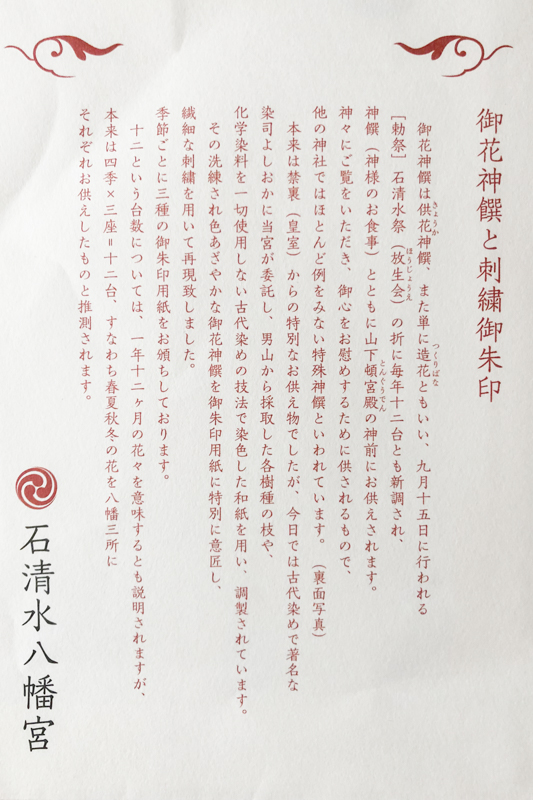 御花神饌と刺繍御朱印
御花神饌は供花神饌、また単に造花ともいい、九月十五日に行われる
［勅祭］石清水祭（放生会）の折に毎年十二台とも新調され、
神饌（神様のお食事）とともに山下頓宮殿の神前にお供えされます。
神々にご覧をいただき、御心をお慰めするために供されるもので、
他の神社ではほとんど例をみない特殊神饌といわれています。（裏面写真）
本来は禁裏（皇室）からの特別なお供え物でしたが、今日では古代染めで著名な
染司よしおかに当宮が委託し、男山から採取した各樹種の枝や、
化学染料を一切使用しない古代染めの技法で染色した和紙を用い、調製されています。
その洗練され色あざやかな御花神饌を御朱印用紙に特別に意匠し、
繊細な刺繍を用いて再現致しました。
季節ごとに三種の御朱印用紙をお頒ちしております。
十二という台数については、一年十二ヶ月の花々を意味するとも説明されますが、
本来は四季×三座＝十二台、すなわち春夏秋冬の花を八幡三所に
それぞれお供えしたものと推測されます。
石清水八幡宮
きょうか
つくりばな
ほうじょうえ
とんぐうでん